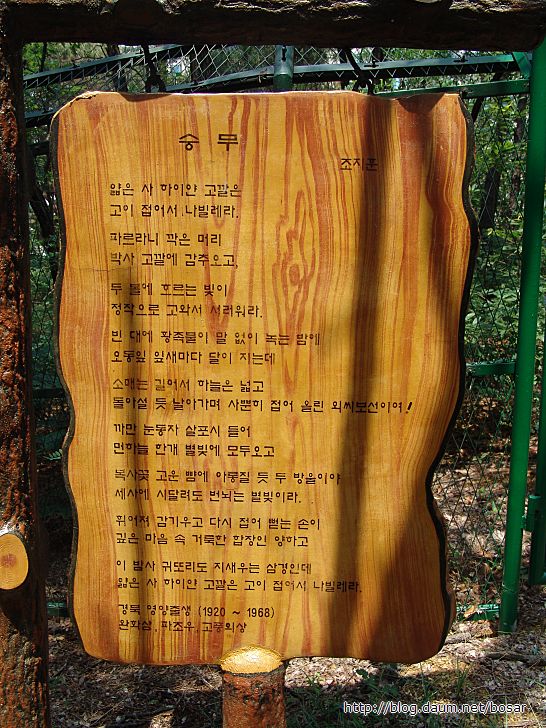 승무
조지훈
얇은 사 하이얀 고깔은
고이 접어서 나빌레라.
파르라니 깍은 머리
박사 고깔에 감추오고,
두 볼에 흐르는 빛이
정작으로 고와서 서러워라.
빈 대에 황촉불이 말 없이 녹는 밤에
오동잎 잎새마다 달이 지는데
소매는 길어서 하늘은 넓고
돌아설 듯 날아가며 사뿐히 접어 올린 외씨보선이여!
까만 눈동자 살포시 들어
먼하늘 한개 별빛에 모두오고
복사꽃 고운 뺨에 아롱질 듯 두 방울이야
세사에 시달려도 번뇌는 별빛이라.
휘어져 감기우고 다시 접어 뻗는 손이
깊은 마음 속 거룩한 합장인 양하고
이 밤사 귀또리도 지새우는 삼경인데
얇은 사 하이얀 고깔은 고이 접어서 나빌레라.
경북 영양출생 (1920 ~ 1968)
완화삼, 파조우, 고풍의상
http://blog.daum.net/bosar